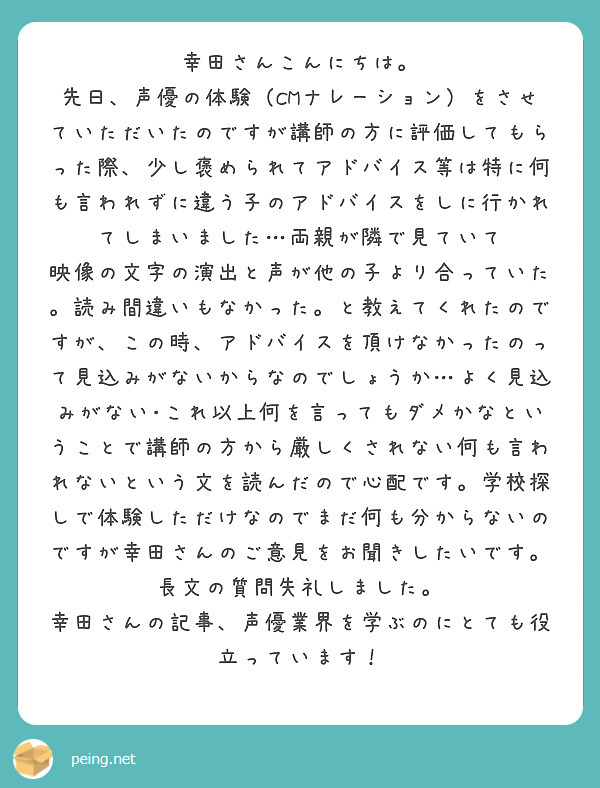 幸田さんこんにちは。
先日、声優の体験（CMナレーション）をさせ
ていただいたのですが講師の方に評価してもら
った際、少し褒められてアドバイス等は特に何
も言われずに違う子のアドバイスをしに行かれ
てしまいました…両親が隣で見ていて
映像の文字の演出と声が他の子より合っていた
。読み間違いもなかった。と教えてくれたので
すが、この時、アドバイスを頂けなかったのっ
て見込みがないからなのでしょうか…よく見込
みがない･これ以上何を言ってもダメかなとい
うことで講師の方から厳しくされない何も言わ
れないという文を読んだので心配です。学校探
しで体験しただけなのでまだ何も分からないの
ですが幸田さんのご意見をお聞きしたいです。
長文の質問失礼しました。
幸田さんの記事、声優業界を学ぶのにとても役
立っています！
peing.net